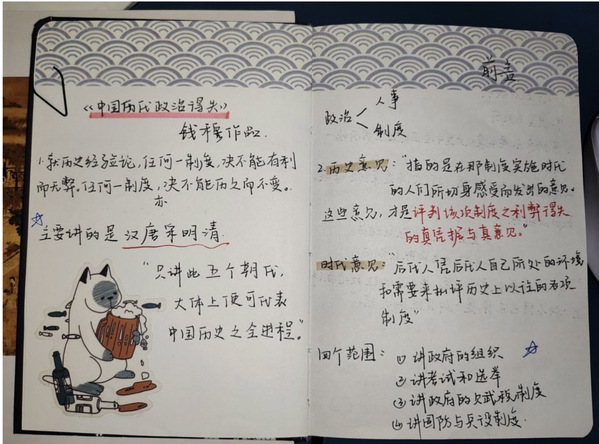 《中国历代政治得失》
钱穆作品.
1.就历史经验论,任何一制度,决不能有利
而无弊.任何一制度,决不能历久而不变.
亦
主要讲的是 汉唐宋明清
"只讲此五个朝代,
大体上便可代表
中国历史之全进程."
前言
政治 人事
制度
2.历史意见:"指的是在那制度实施时代
的人们所切身感受而发出的意见.
这些意见,才是评判该项制度之利弊得失
的真凭据与真意见."
时代意见:"后代人凭后代人自己所处的环境
和需要来批评历史上以往的各项
制度"
四个范围:①讲政府的组织
②讲考试和选举
③讲政府的 赋税制度
④讲国防与兵役制度.